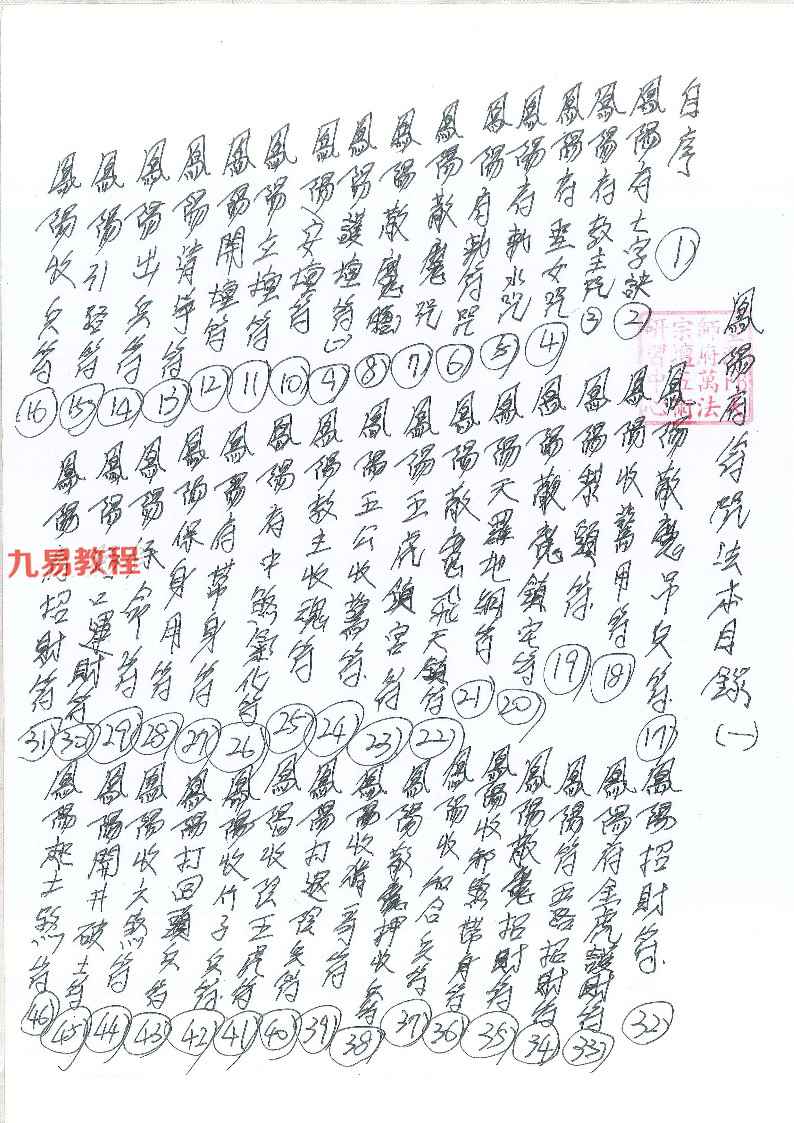 鳳陽府符咒法本目錄(一)
自序 ①
鳳陽府大字訣 ②
鳳陽府教主咒 ③
鳳陽府聖女咒 ④
鳳陽府勅水咒 ⑤
鳳陽府勅符咒 ⑥
鳳陽敵魔咒 ⑦
鳳陽敵魔 ⑧
鳳陽護壇符(一) ⑨
鳳陽安壇符 ⑩
鳳陽立壇符 ⑪
鳳陽開壇符 ⑫
鳳陽清淨符 ⑬
鳳陽出兵符 ⑭
鳳陽引路符 ⑮
鳳陽收兵符 ⑯
鳳陽敵魔吊兵符 ⑰
鳳陽收驚用符 ⑱
鳳陽制頭符 ⑲
鳳陽敵魔鎮宅符 ⑳
鳳陽天羅地網符 21
鳳陽敵魔飛天符 22
鳳陽五虎鎮宮符 23
鳳陽五公收驚符 24
鳳陽教主收魂符 25
鳳陽府中煞氣化符 26
鳳陽府帶身符 27
鳳陽保身用符 28
鳳陽保命符 29
鳳陽運財符 30
鳳陽招財符 31
鳳陽招財符 32
鳳陽府金虎護財符 33
鳳陽符五路招財符 34
鳳陽敵魔招財符 35
鳳陽收邪煞帶身符 36
鳳陽收和合兵符 37
鳳陽敵魔押收兵 38
鳳陽收猴哥符 39
鳳陽打退陰兵符 40
鳳陽收陰五虎符 41
鳳陽收竹子兵符 42
鳳陽打回頭兵符 43
鳳陽收六煞符 44
鳳陽開井破土符 45
鳳陽起土煞符 46
師府萬法
宗壇五術
研習中心
九易教程